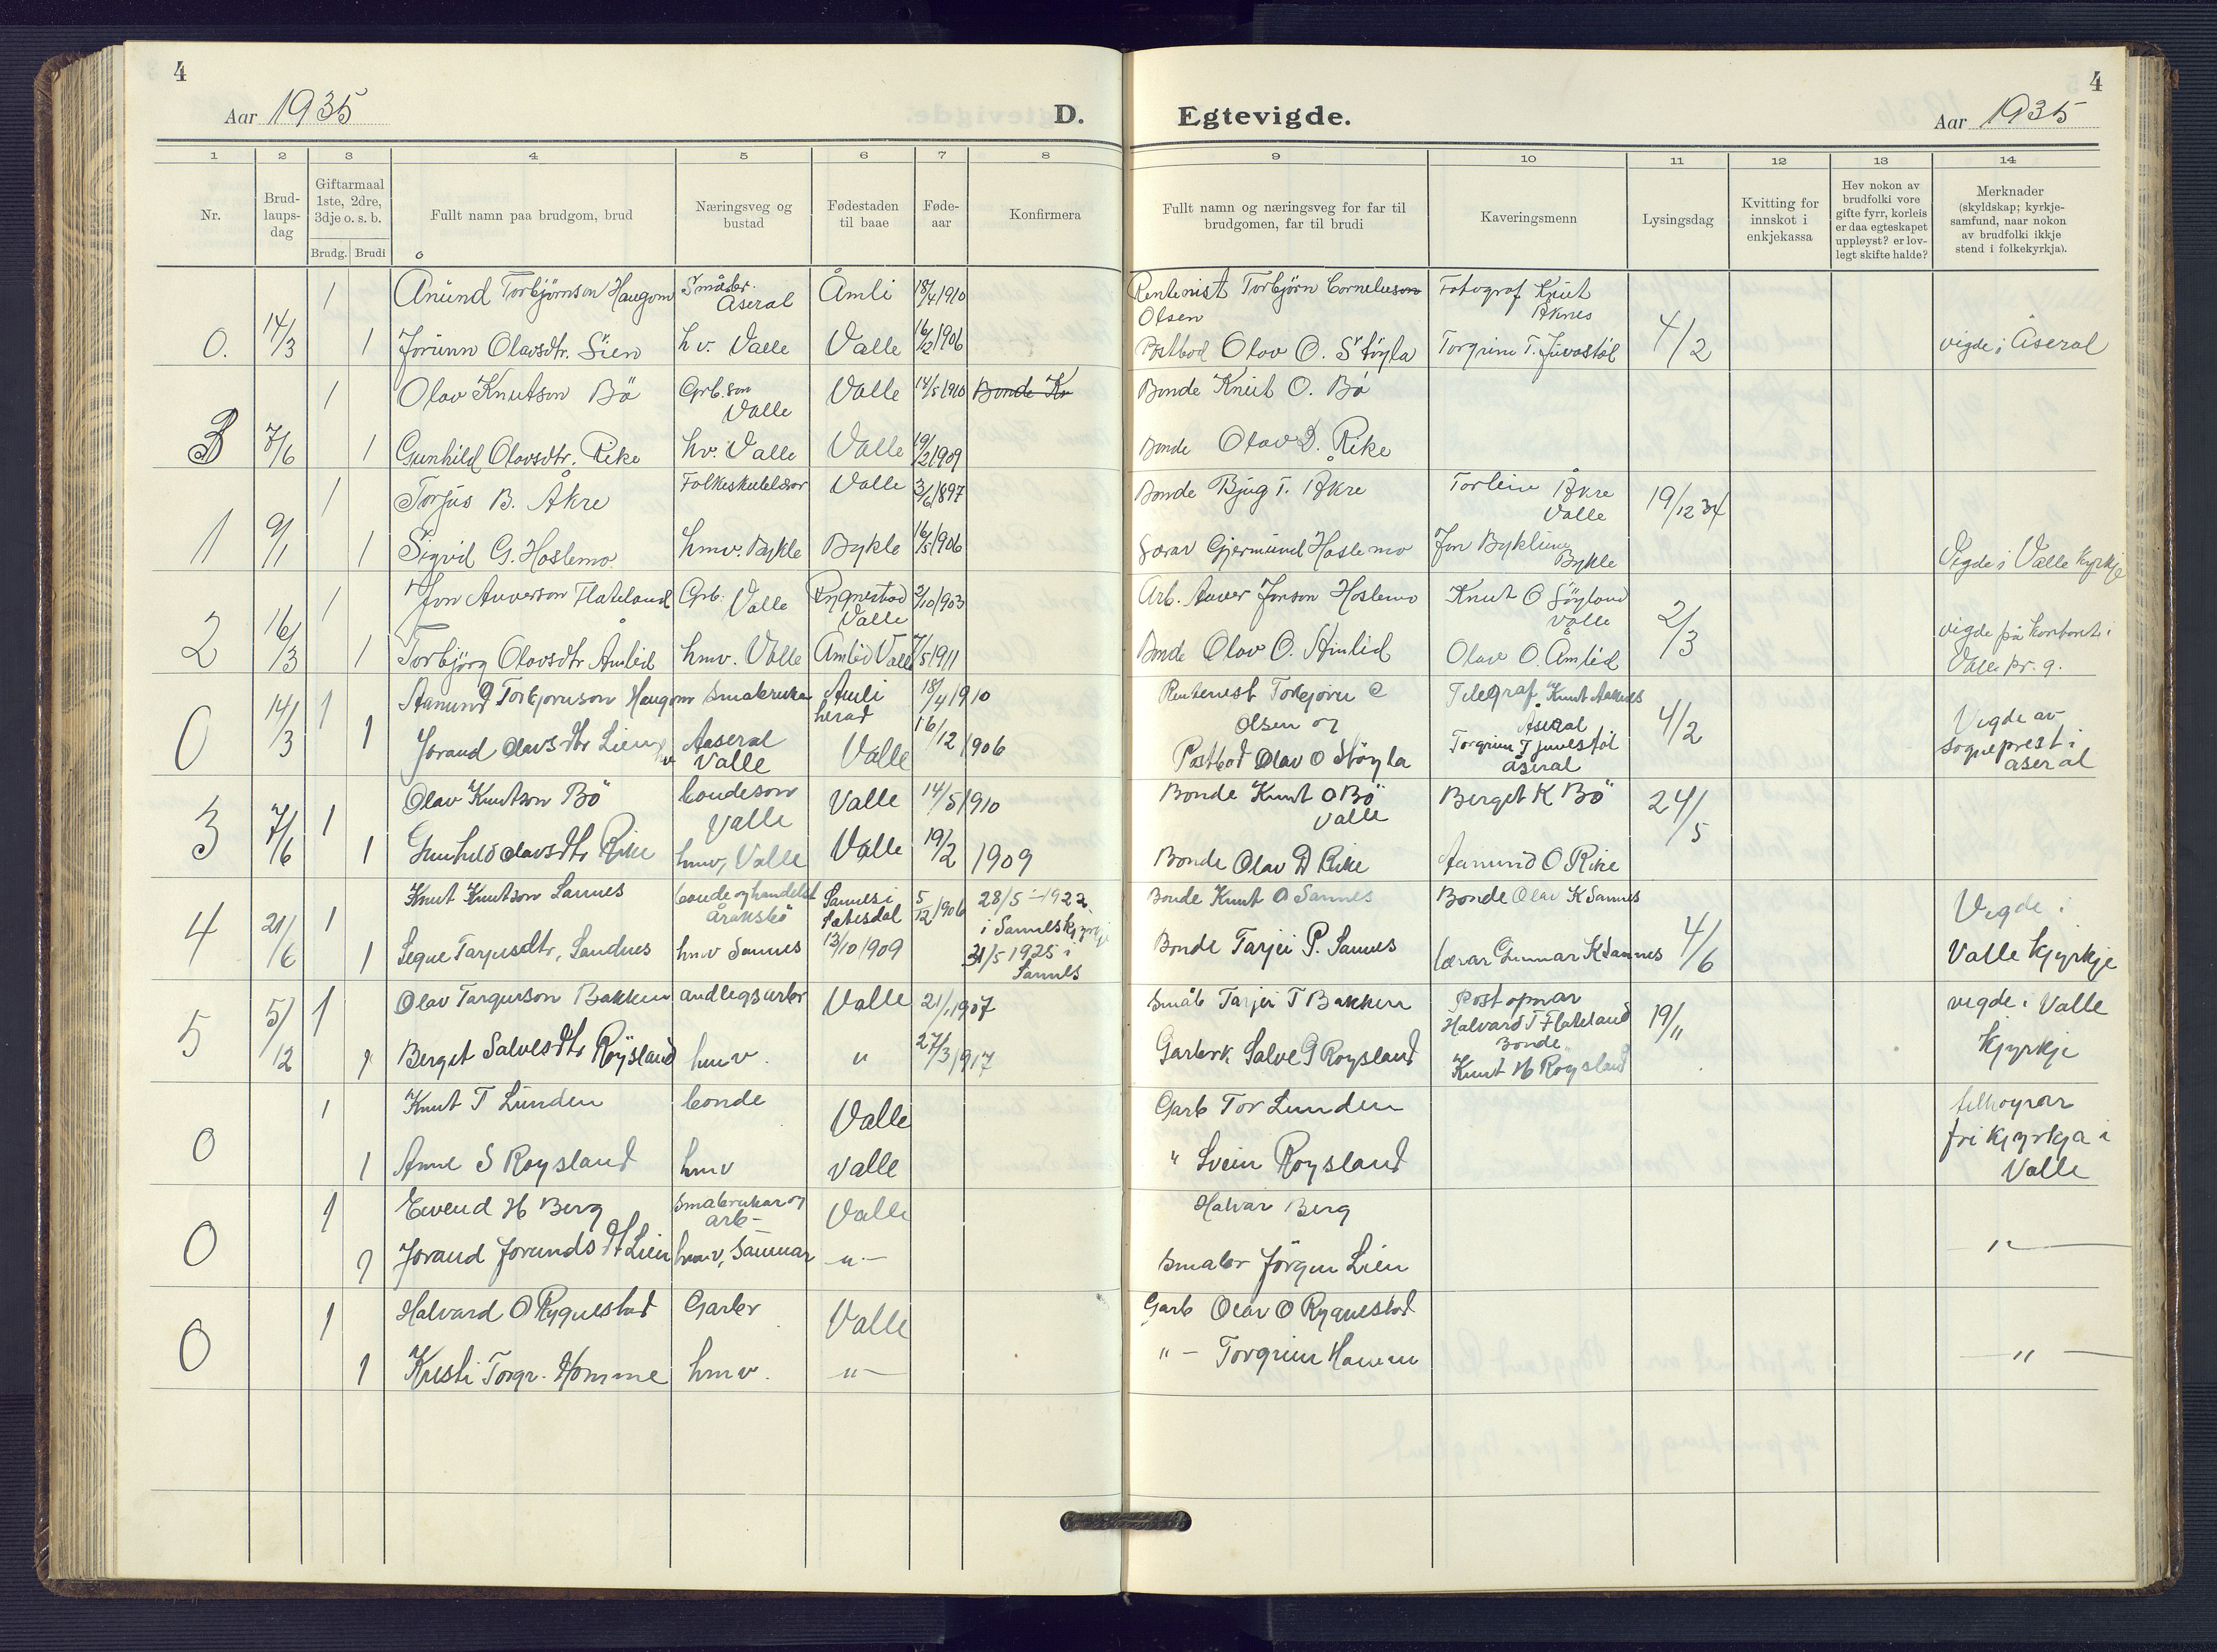 4
Aar 1935
D.
Egtevigde.
4
Aar 1935
1 2 3 4 5 6 7 8 9 10 11 12 13 14
Nr.
Brud-
laups-
dag
Giftarmaal
1ste, 2dre,
3dje o. s. b.
Brudg. Brudi
Fullt namn paa brudgom, brud
Næringsveg og
bustad
Fødestaden
til baae
Føde-
aar
Konfirmera
Fullt namn og næringsveg for far til
brudgomen, far til brudi
Kaveringsmenn
Lysingsdag
Kvitting for
innskot i
enkjekassa
Hev nokon av
brudfolki vore
gifte fyrr, korleis
er daa egteskapet
uppløyst? er lov-
legt skifte halde?
Merknader
(skyldskap; kyrkje-
samfund, naar nokon
av brudfolki ikkje
stend i folkekyrkja).
1 Anund Torbjørnson Haugom Småbr. Åseral Åmli 18/4 1910 Rentenist Torbjörn Corneliuson Olsen Fotograf Knut Åknes
0. 14/3 1 Jorunn Olavsdtr. Lien hv. Valle Valle 16/12 1906 Postbod Olav O. Støyla Torgrim T. Juvastøl 4/2 vigde i Åseral
1 Olav Knutson Bö Grb. son Valle Valle 14/5 1910 Bonde Kn Bonde Knut O. Bö
3 7/6 1 Gunhild Olavsdtr. Rike hv. Valle Valle 19/2 1909 Bonde Olav D. Rike
1 Torjus B. Åkre Folkeskulelærar Valle 3/6 1897 Bonde Bjug T. Åkre Torleiv Åkre Valle 19/12 34
1 9/1 1 Sigrid G. Hoslemo hmv. Bykle Bykle 16/5 1906 Lærar Gjermund Hoslemo Jon Byklum Bykle Vigde i Valle kyrkje
1 Jon Anverson Flateland Grb. Valle Rygnestad Valle 2/10 1903 Arb. Anver Jonson Hoslemo Knut O Löyland Valle
2 16/3 1 Torbjörg Olavsdtr Åmlid hmv. Valle Åmlid Valle 7/5 1911 Bonde Olav O. Åmlid Olav O. Åmlid 2/3 vigde på kontoret i Valle pr. g.
0 14/3 1 Aanund Torbjornson Haugom Smabrukar Amli herad 18/4 1910 Rentenist Torbjörn C Olsen og Telegraf Knut Aaknes Åseral 4/2 Vigde av sogneprest i åseral
1 Jorand Olavsdtr Lien hv Aaseral Valle Valle 16/12 1906 Postbod Olav O Stöyla Torgrim T juvestøl åseral
3 7/6 1 Olav Knutson Bö bondeson Valle Valle 14/5 1910 Bonde Knut O Bö Valle Berget K Bö 24/5
1 Gunhild Olavsdtr Rike hmv, Valle Valle 19/2 1909 Bonde Olav D Rike Aanund O. Rike
4 21/6 1 Knut Knutson Sannes bonde og handelst åraksbö Sannes i Setesdal 5/12 1906 28/5 - 1922 i Sannes kyrkje Bonde Knut O Sannes Bonde Olav K Sannes 4/6 Vigde i Valle kjyrkje
1 Signe Tarjusdtr, Sandnes hmv Sannes 13/10 1909 31/5 1925 i Sannes Bonde Tarjei P. Sannes lærar Gunnar K Sannes
5 5/12 1 Olav Targurson Bakken andlegsarbr Valle 21/1 1907 Småb Tarjei T Bakken Post opnar Halvard T Flateland 19/11 vigde i Valle kjyrkje
1 Berget Salvesdtr Röysland hmv. " 27/3 1917 Garbrk Salve G Roysland Bonde Knut H Roysland
0 1 Knut T Lunden bonde Valle Garb Tor Lunden tilhoyrar fri kjyrkja i Valle
1 Anne S Roysland hmv Valle " Svein Roysland
0 1 Eivend H Berg Smabrukar og arb- Valle Halvar Berg
1 Jorand Jorundsdt Lien hmv, Saumar -"- Smabr Jörgen Lien "-
0 1 Halvard O Rygnestad Garbr Valle Garb Olav O Rygnestad
1 Kristi Torgr. Homme hmv. -"- "- Torgrim Homm "-